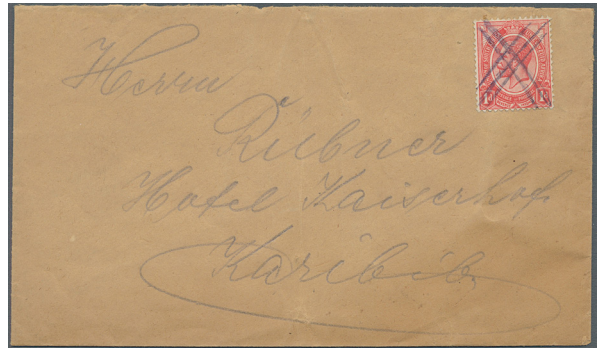 Herrn
Rübner
Hotel Kaiserhof
Karibib
1d 1d